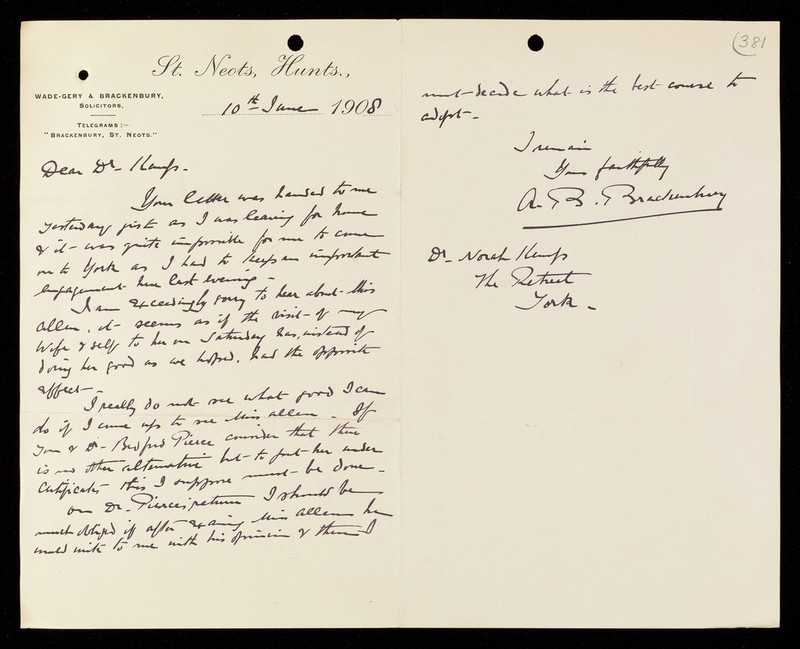 St. Neots, Hunts.,
WADE-GERY & BRACKENBURY,
SOLICITORS,
TELEGRAMS:—
"BRACKENBURY, ST. NEOTS."
10th June 1908
Dear Dr. Kemp.
Your letter was handed to me
yesterday just as I was leaving for home
& it was quite impossible for me to come
on to York as I had to keep an important
engagement here last evening -
I am exceedingly sorry to hear about Miss
Allen, it seems as if the visit of my
wife & self to her on Saturday has, instead of
doing her good as we hoped, had the opposite
effect -
I really do not see what good I can
do if I came up to see Miss Allen. If
you & Dr. Bedford Pierce consider that there
is no other alternative but to put her under
Certificates this I suppose must be done -
On Dr. Pierce's return I should be
much obliged if after Miss Allen he
would write to me with his opinion & then I
(381
must decide what is the best course to
adopt -
I remain
Yours faithfully
A. B. Brackenbury
Dr. Norah Kemp
The Retreat
York -